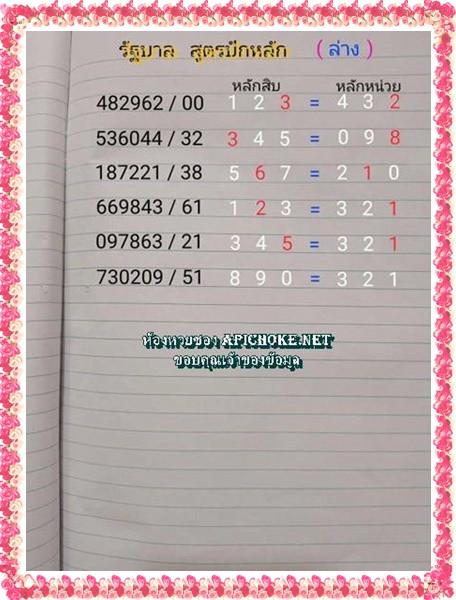 รัฐบาล สูตรปักหลัก (ล่าง)
หลักสิบ หลักหน่วย
482962 / 00 1 2 3 = 4 3 2
536044 / 32 3 4 5 = 0 9 8
187221 / 38 5 6 7 = 2 1 0
669843 / 61 1 2 3 = 3 2 1
097863 / 21 3 4 5 = 3 2 1
730209 / 51 8 9 0 = 3 2 1
ห้องหวยซอง APICHOKE.NET
ขอบคุณเจ้าของข้อมูล